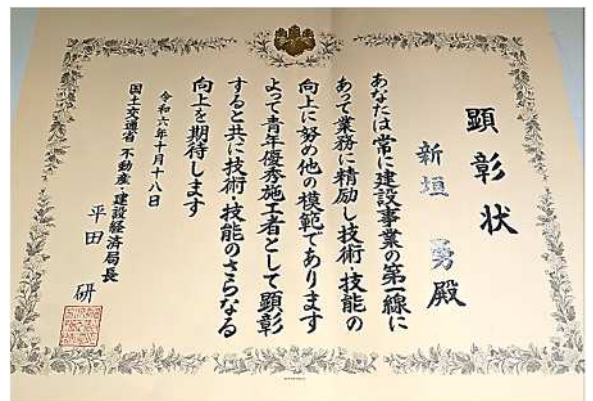 顕彰状
新垣 勇殿
あなたは常に建設事業の第一線に
あって業務に精励し技術・技能の
向上に努め他の模範であります
よって青年優秀施工者として顕彰
すると共に技術・技能のさらなる
向上を期待します
令和六年十月十八日
国土交通省 不動産・建設経済局長
平田 研